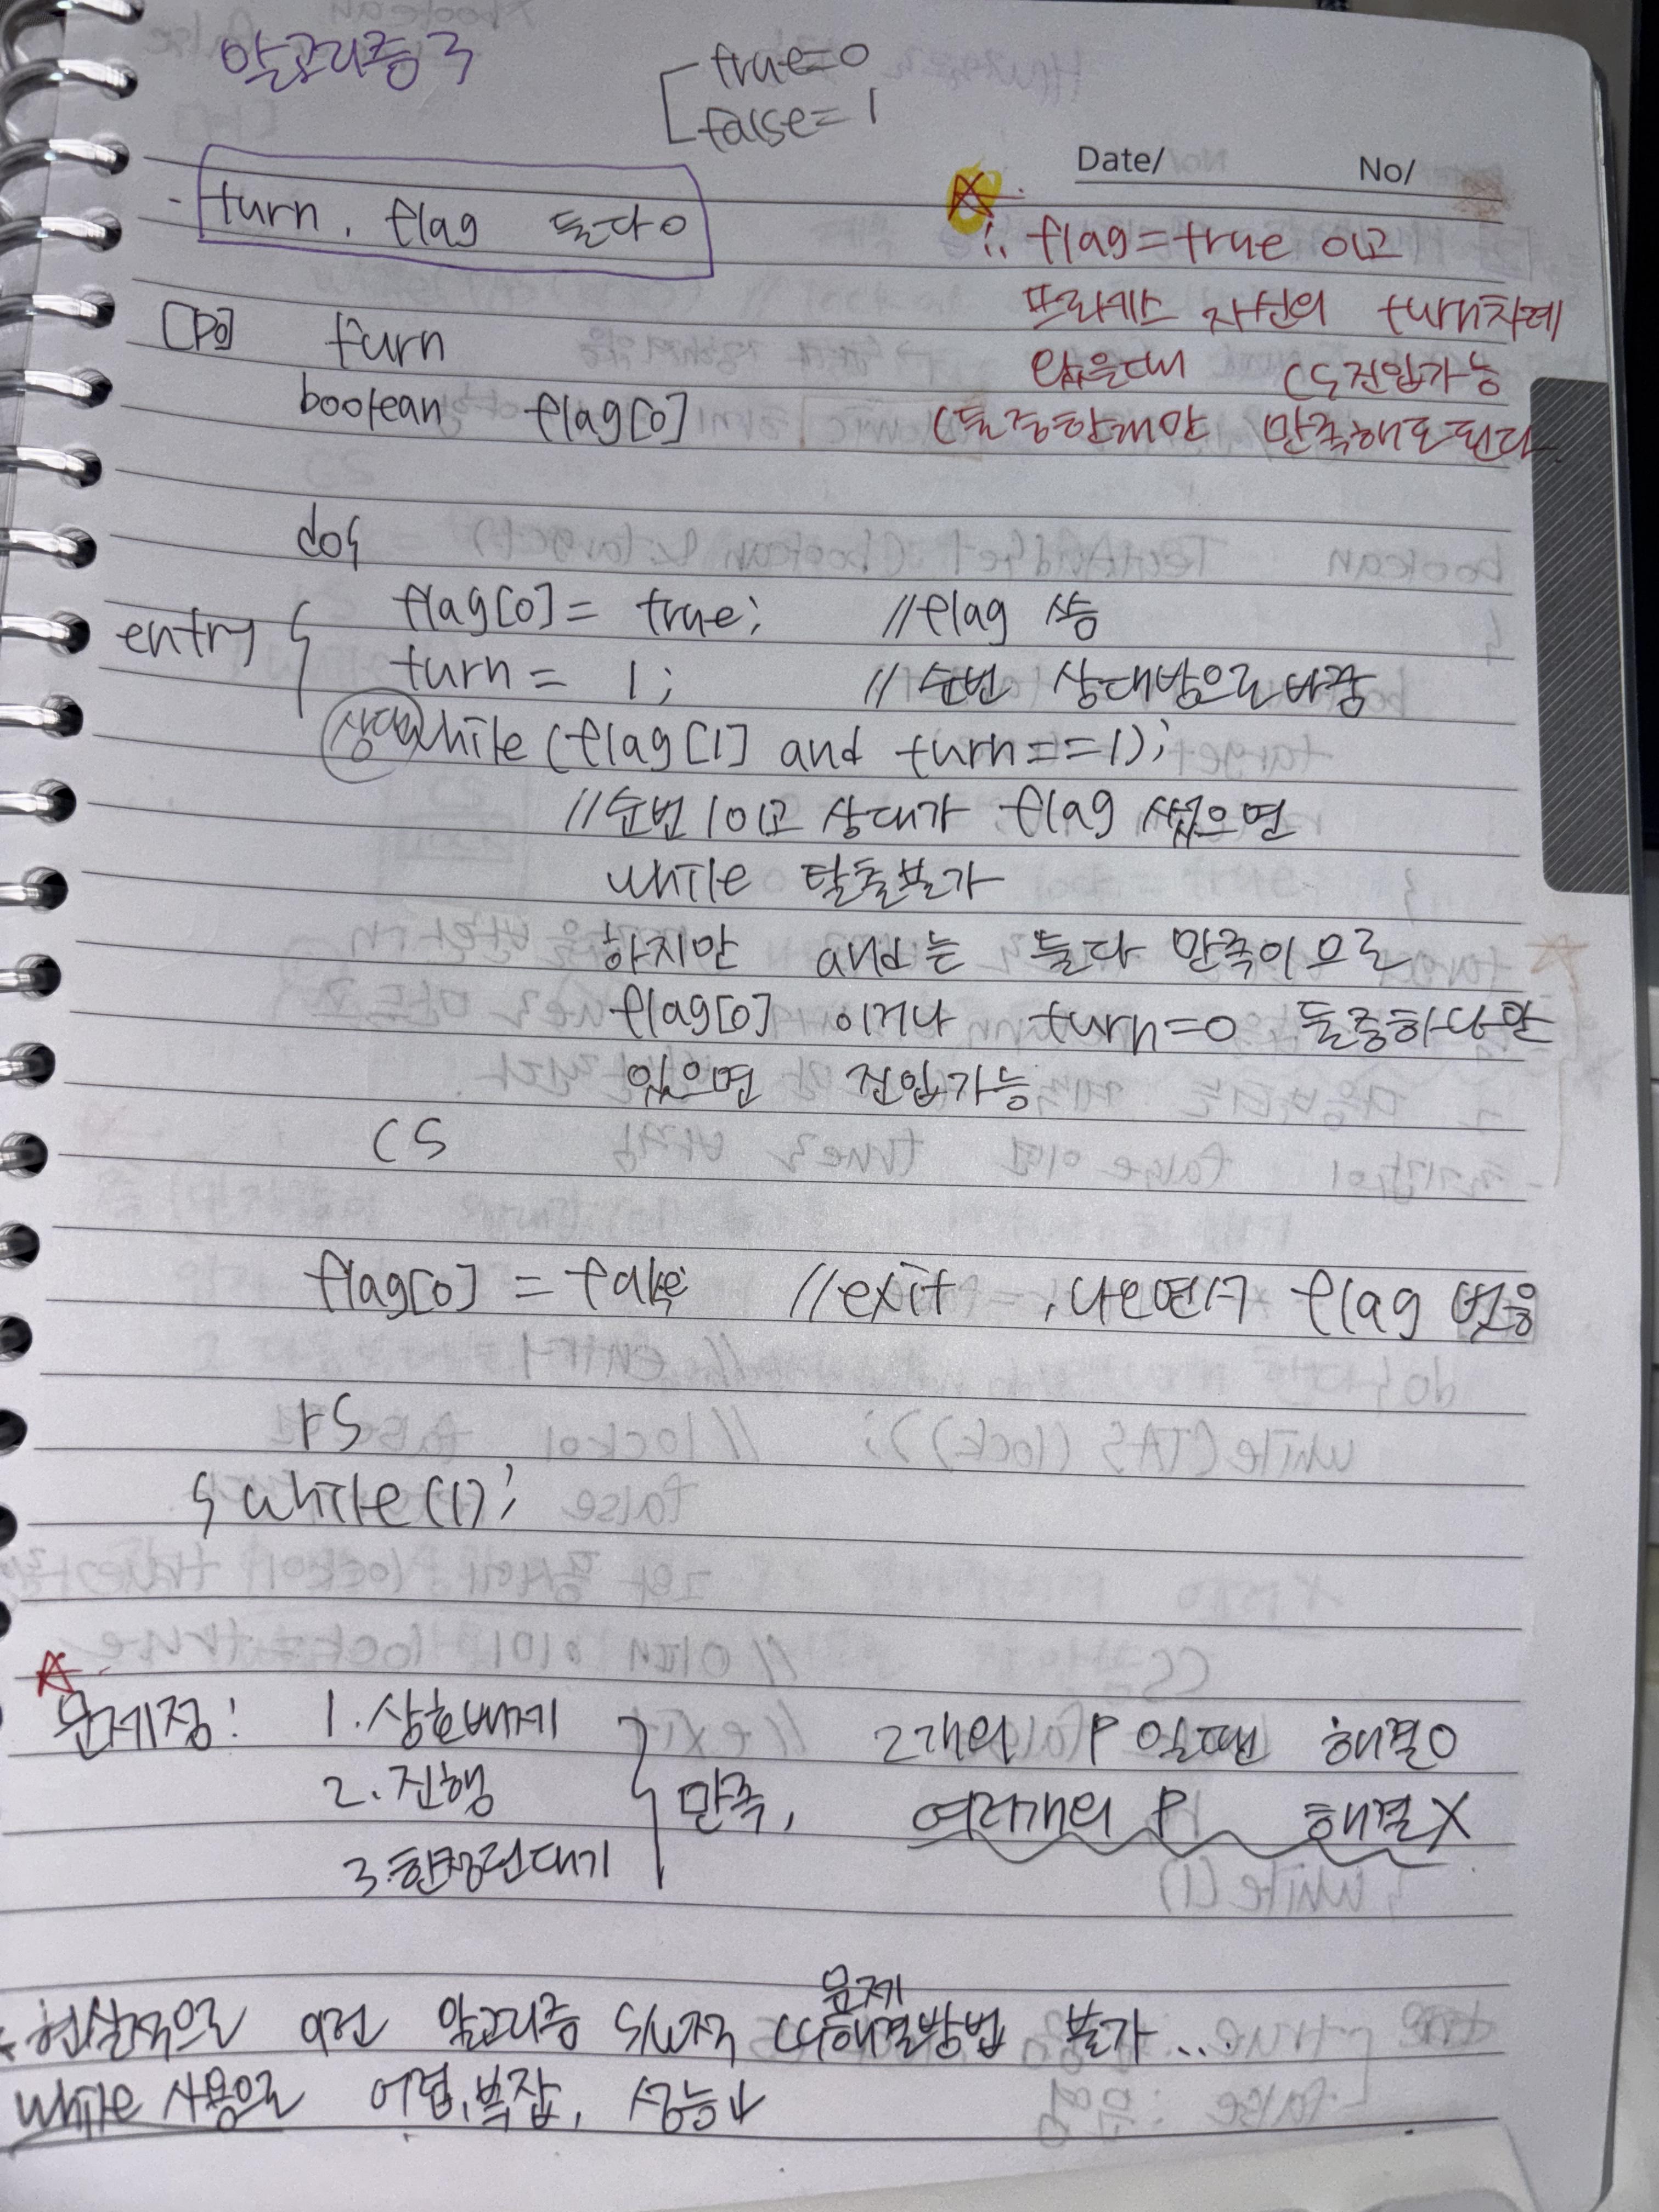 알고리즘 3
true=0
false=1
Date/ No/
- turn, flag 둘다 o
∴ flag=true 이고
프로세스 자신의 turn차례
왔을때 CS진입가능
(둘중한개만 만족해도된다.
[P0] turn
boolean flag[0]
do{
entry { flag[0] = true; //flag 씀
turn = 1; //순번 상대방으로바꿈
상대 while (flag[1] and turn==1);
//순번 1이고 상대가 flag 썼으면
while 탈출불가
하지만 and는 둘다 만족이므로
flag[0] 이거나 turn=0 둘중하나만
있으면 진입가능
CS
flag[0] = false //exit , 나오면서 flag 벗음
rS
} while(1);
문제점: 1. 상호배제
2. 진행
3. 한정된대기
만족,
2개의 P 일땐 해결O
여러개의 P 해결X
현실적으로 이런 알고리즘 S/W적 CS문제해결방법 불가...
while 사용으로 어렵,복잡, 성능↓